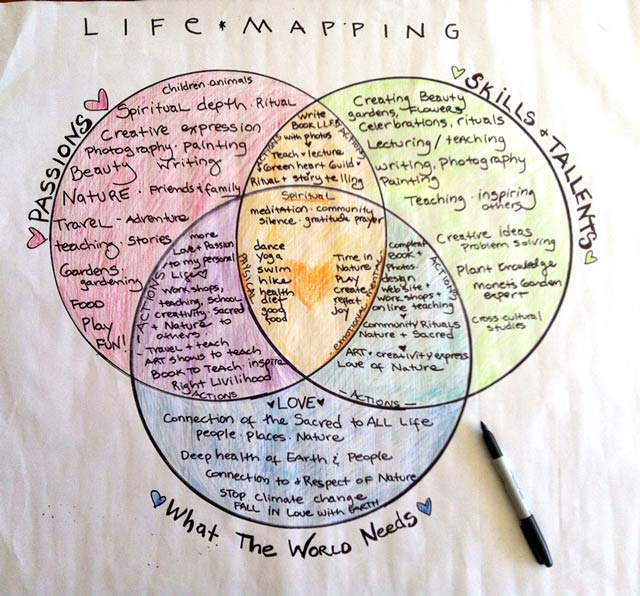 LIFE * MAPPING
PASSIONS
children·animals
Spiritual depth·Ritual
Creative expression
Photography·painting
Beauty Writing
NATURE·Friends & family
Travel - Adventure
teaching·stories
Gardens·
gardening
FOOD
Play
FUN!
ACTIONS
Write
BOOK LLFB
with photos
ACTIONS
Teach + lecture
Green heart Guild
Ritual + story telling
SKILLS & TALLENTS
Creating Beauty
gardens, FLOWERS
Celerbrations, rituals
Lecturing / teaching
writing, Photography
Painting
Teaching·inspiring
others
Creative ideas
Problem solving
Plant knowledge
monets Garden
expert
cross cultural
studies
Spiritual
meditation·community
silence·gratitude prayer
PHYSICAL
dance
yoga
swim
hike
health
diet
good
food
Time in
Nature
PLAY
create
reflect
joy
emotional·mental
ACTIONS
more
Love + Passion
to my personal
Life
Workshops,
teaching, school
creativity·sacred
+ Nature to
others
Travel + teach
ART shows to teach
BOOK TO TEACH·inspire
Right Livilihood
ACTIONS
Compleat
BOOK +
Photos.
design
website +
workshops +
online teaching
ACTIONS
Community Rituals
Nature + Sacred
ART + creativity express
Love of Nature
ACTIONS
LOVE
Connection of the Sacred to ALL Life
people·places·Nature
Deep health of Earth & People
Connection to + Respect of Nature
STOP climate change
FALL IN LOVE with EARTH
What The World Needs